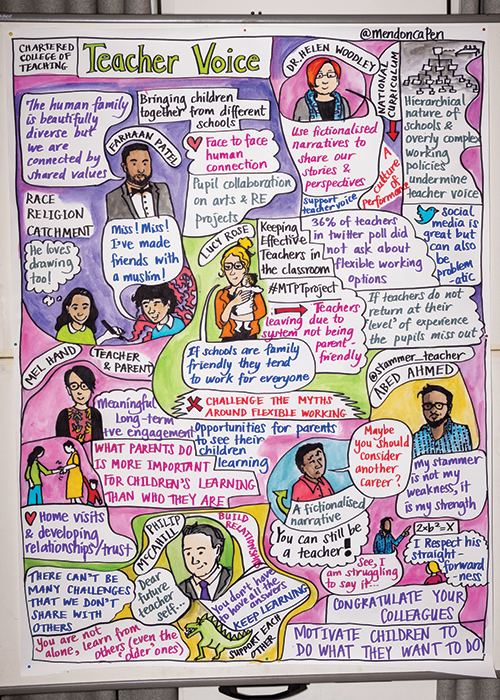 @mendoncapen
CHARTERED
COLLEGE OF
TEACHING
Teacher Voice
The human family
is beautifully
diverse but
we are
connected by
shared values
FARHAAN PATEL
Bringing children
together from different
schools
Face to face
human
connection
Pupil collaboration
on arts & RE
projects
RACE
RELIGION
CATCHMENT
He loves
drawing
too!
Miss! Miss!
I've made
friends with
a muslim!
DR. HELEN WOODLEY
Use fictionalised
narratives to
share our
stories &
perspectives
support
teacher voice
NATIONAL
CURRICULUM
A
culture
of
performance
Hierarchical
nature of
schools &
overly complex
working
policies
undermine
teacher voice
social
media is
great but
can also
be
problem
-atic
LUCY ROSE
Keeping
Effective
Teachers in
the classroom
#MTPTproject
36% of teachers
in twitter poll did
not ask about
flexible working
options
Teachers
leaving due to
system not being
parent
friendly
If teachers do not
return at their
level of experience
the pupils miss out
If schools are family
friendly they tend
to work for everyone
CHALLENGE THE MYTHS
AROUND FLEXIBLE WORKING
MEL HAND
TEACHER
& PARENT
Meaningful
Long-term
+ve engagement
Opportunities for parents
to see their
children
learning
WHAT PARENTS DO
IS MORE IMPORTANT
FOR CHILDREN'S LEARNING
THAN WHO THEY ARE
Home visits
& developing
relationships/trust
@stammer_teacher
ABED AHMED
Maybe
you should
consider
another
career?
my stammer
is not my
weakness, it
is my strength
A fictionalised
narrative
You can still be
a teacher!
2xb²=x
See, I
am struggling
to say it...
I Respect his
straight-
forward
ness
CONGRATULATE YOUR
COLLEAGUES
MOTIVATE CHILDREN TO
DO WHAT THEY WANT TO DO
PHILIP
McCAHILL
BUILD
RELATIONSHIPS
Dear
future
teacher
self...
You don't have
to have all the
answers
KEEP LEARNING
SUPPORT EACH
OTHER
THERE CAN'T BE
MANY CHALLENGES
THAT WE DON'T
SHARE WITH
OTHERS
You are not
alone, learn from
others (even the
'older' ones)